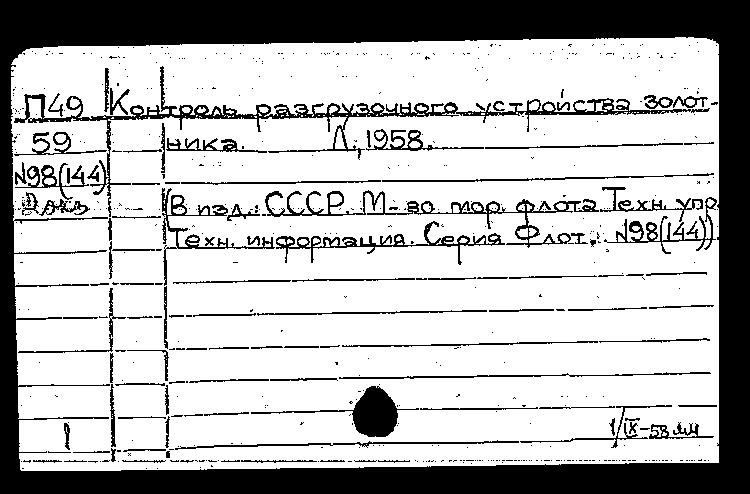 П49 Контроль разгрузочного устройства золот-
59 ника. Л., 1958.
N98(144)
2 экз (В изд.: СССР. М-во мор. флота Техн. упр.
Техн. информация. Серия Флот. N98(144))
1 1/IX-58 мм